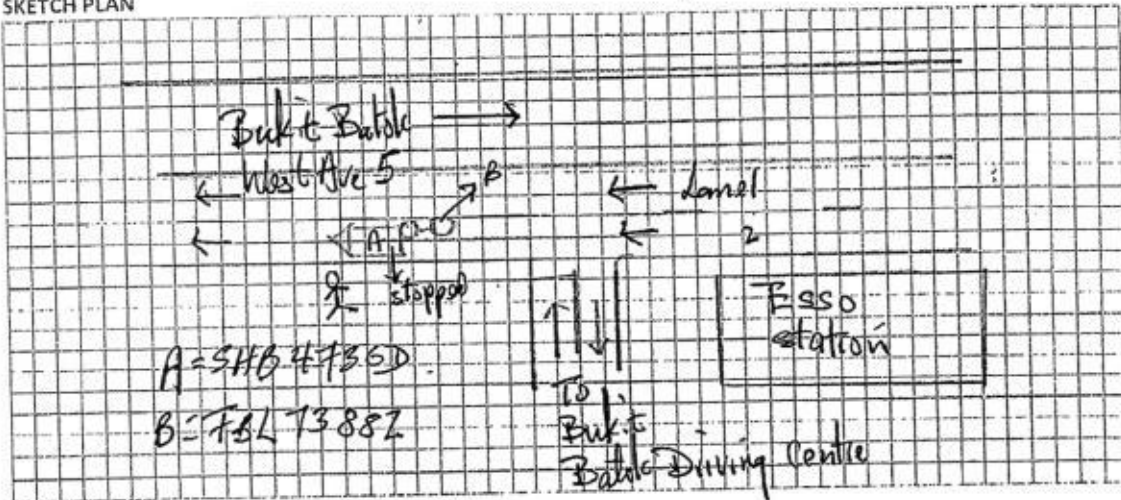 SKETCH PLAN
Bukit Batok
West Ave 5
B
Lane 1
A
2
stopped
Esso
station
A = SHB 4735D
B = FBL 7388Z
To
Bukit
Batok Driving Centre